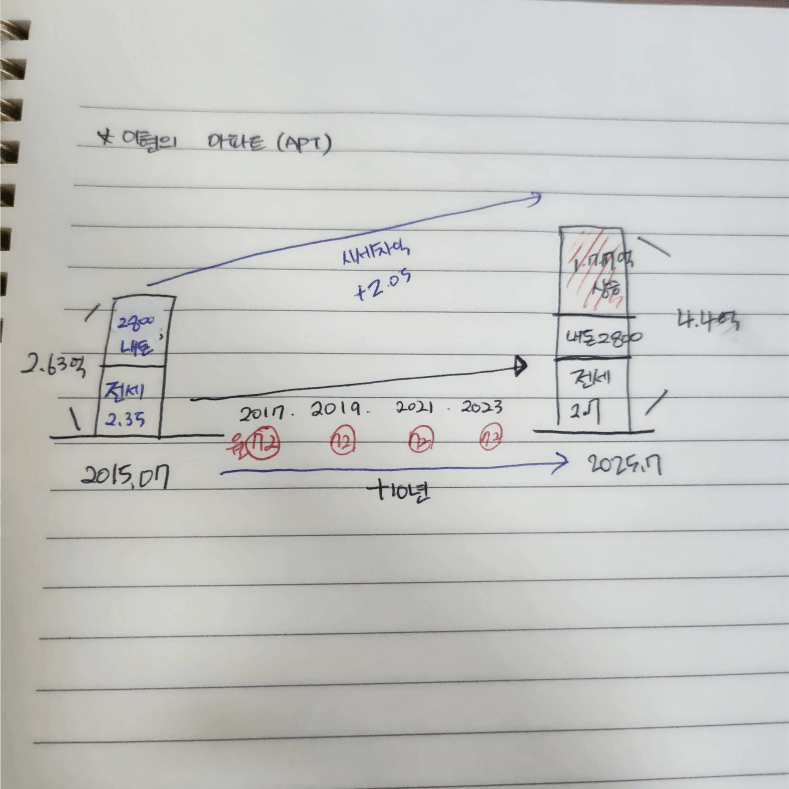 * 이형의 아파트 (APT)
시세차익
+2.05
2800
내돈
전세
2.35
2.63억
2015.07
2017. 2019. 2021. 2023
72 72 72 72
+10년
1.77억
상승
내돈2800
전세
2.7
4.4억
2025.7